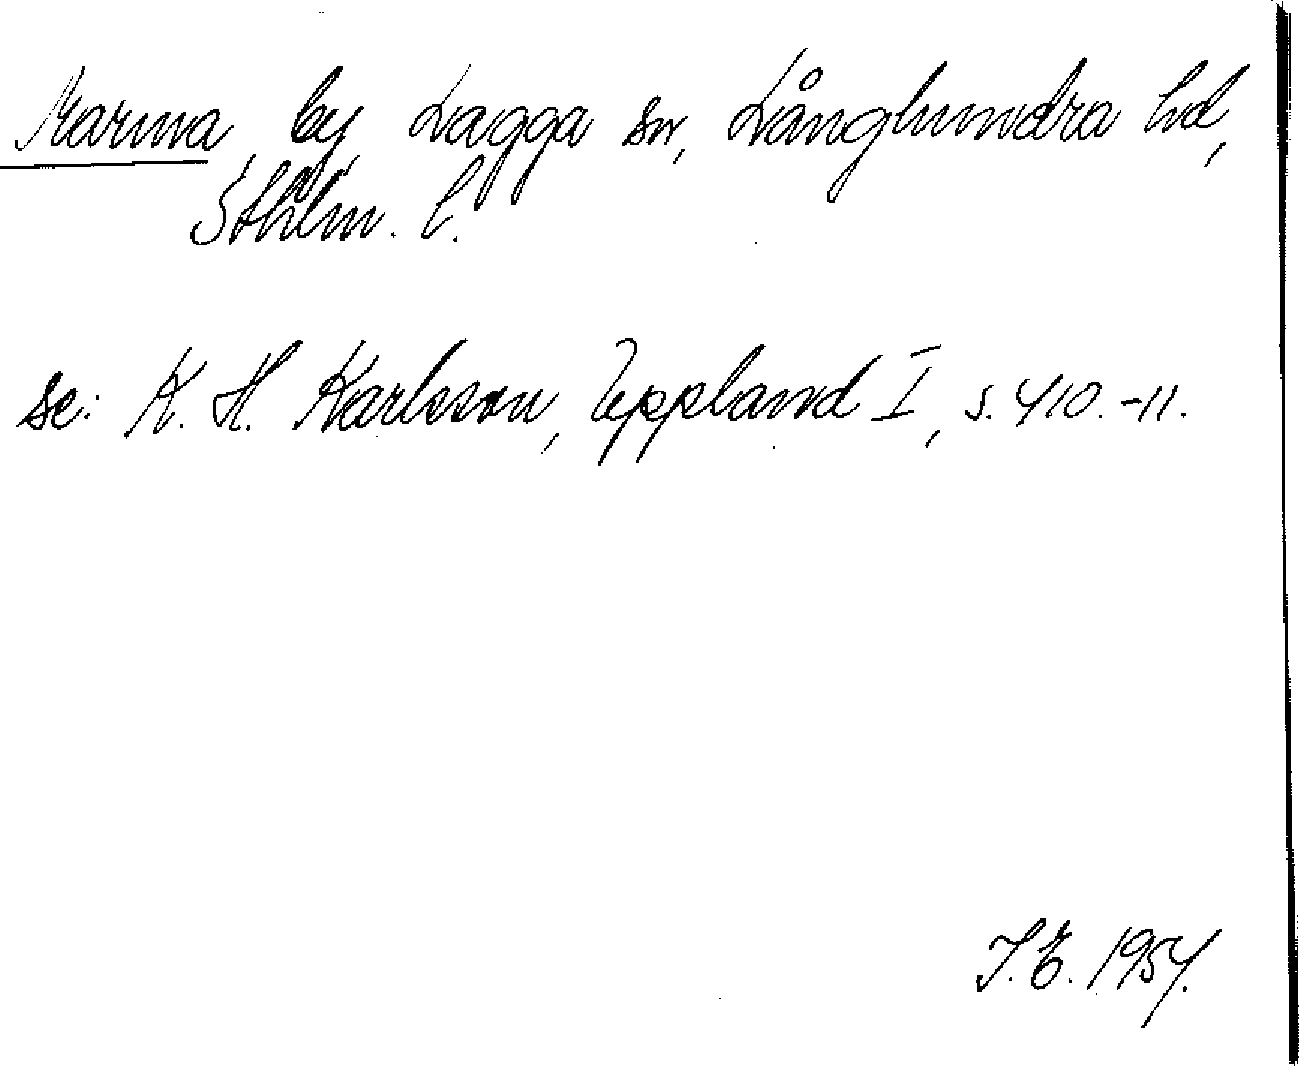 Marma, by, Lagga sn, Långhundra hd,
Sthlm. l.
se: K. H. Karlsson, Uppland I, s. 410.-11.
I.E. 1954.